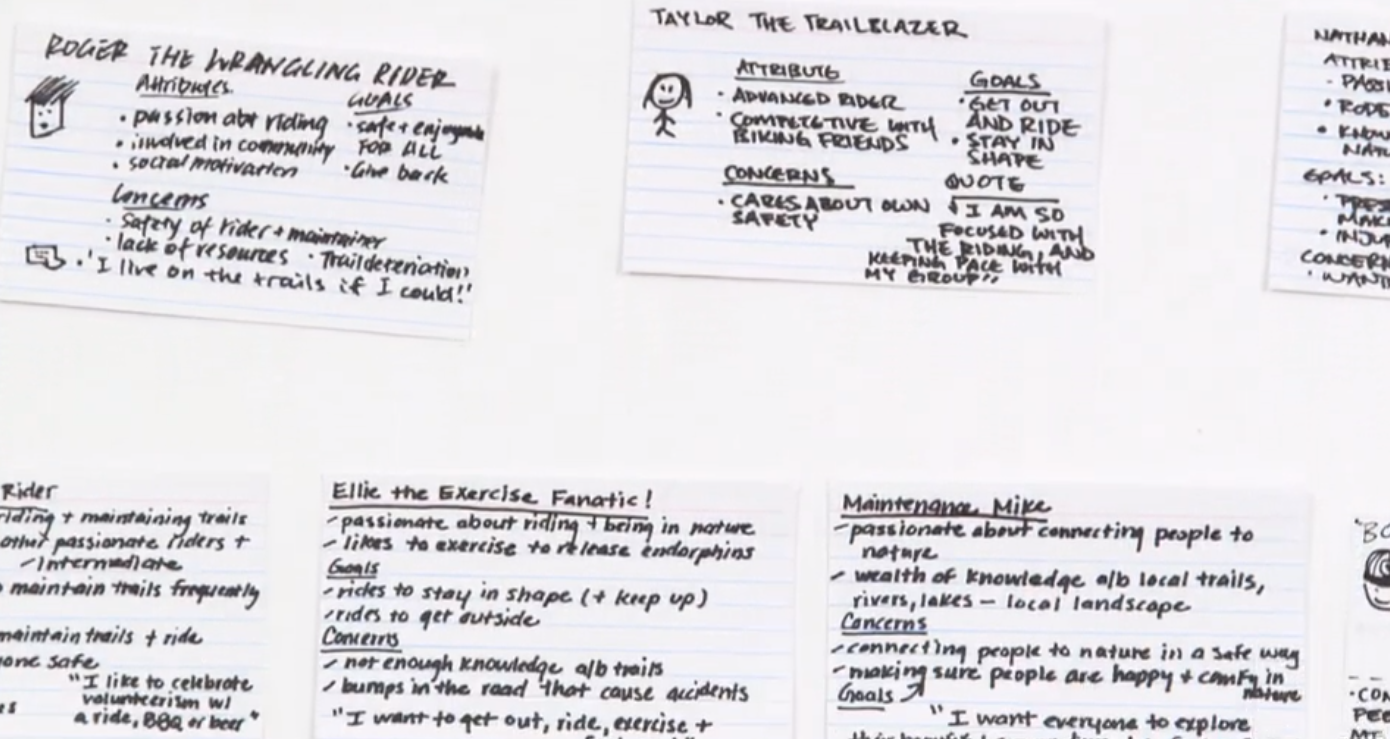 ROGER THE WRANGLING RIDER
Attributes
• passion abt riding
• involved in community
• social motivation
GOALS
• safe + enjoyable
FOR ALL
• Give back
Concerns
• Safety of rider + maintainer
• lack of resources • Trail deterioration
• 'I live on the trails if I could!'
TAYLOR THE TRAILBLAZER
ATTRIBUTE
• ADVANCED RIDER
• COMPETETIVE WITH
BIKING FRIENDS
GOALS
• GET OUT
AND RIDE
• STAY IN
SHAPE
CONCERNS
• CARES ABOUT OWN
SAFETY
QUOTE
"I AM SO
FOCUSED WITH
THE RIDING, AND
KEEPING PACE WITH
MY GROUP"
NATHAN
ATTRIB
- PASSI
• RODE
• KNOW
NATU
GOALS:
MAK
• INJU
CONCERN
• WANT
Rider
riding + maintaining trails
other passionate riders +
-Intermediate
maintain trails frequently
maintain trails + ride
one safe
"I like to celebrate
volunteerism w/
a ride, BBQ or beer"
Ellie the Exercise Fanatic!
- passionate about riding + being in nature
- likes to exercise to release endorphins
Goals
- rides to stay in shape (+ keep up)
- rides to get outside
Concerns
- not enough knowledge a/b trails
- bumps in the road that cause accidents
"I want to get out, ride, exercise +
Maintenance Mike
- passionate about connecting people to
nature
- wealth of knowledge a/b local trails,
rivers, lakes — local landscape
Concerns
- connecting people to nature in a safe way
- making sure people are happy + comfy in
nature
Goals
"I want everyone to explore
"BO
• CON
PEO
MT